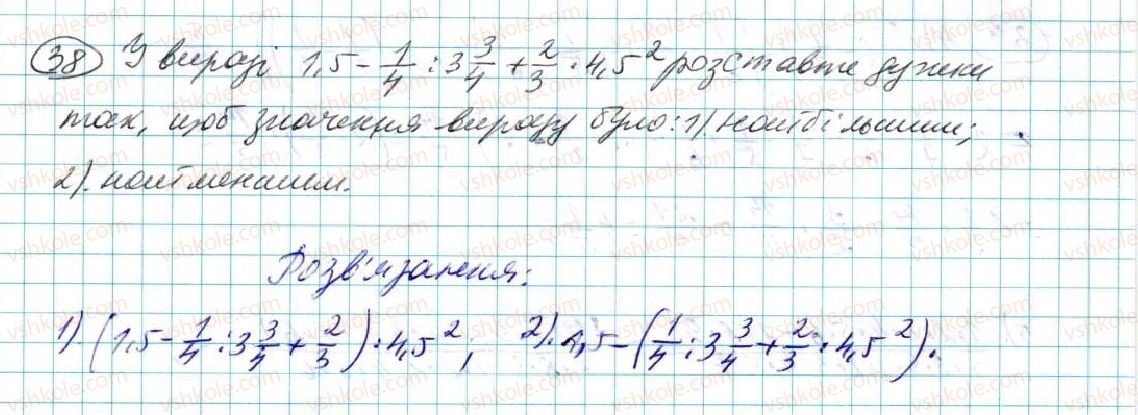 38 У виразі 1,5 - 1/4 : 3 3/4 + 2/3 · 4,5² розставте дужки
так, щоб значення виразу було: 1). найбільшим;
2). найменшим.
Розв'язання:
1) (1,5 - 1/4 : 3 3/4 + 2/3) · 4,5²; 2). 1,5 - (1/4 : 3 3/4 + 2/3 · 4,5²).